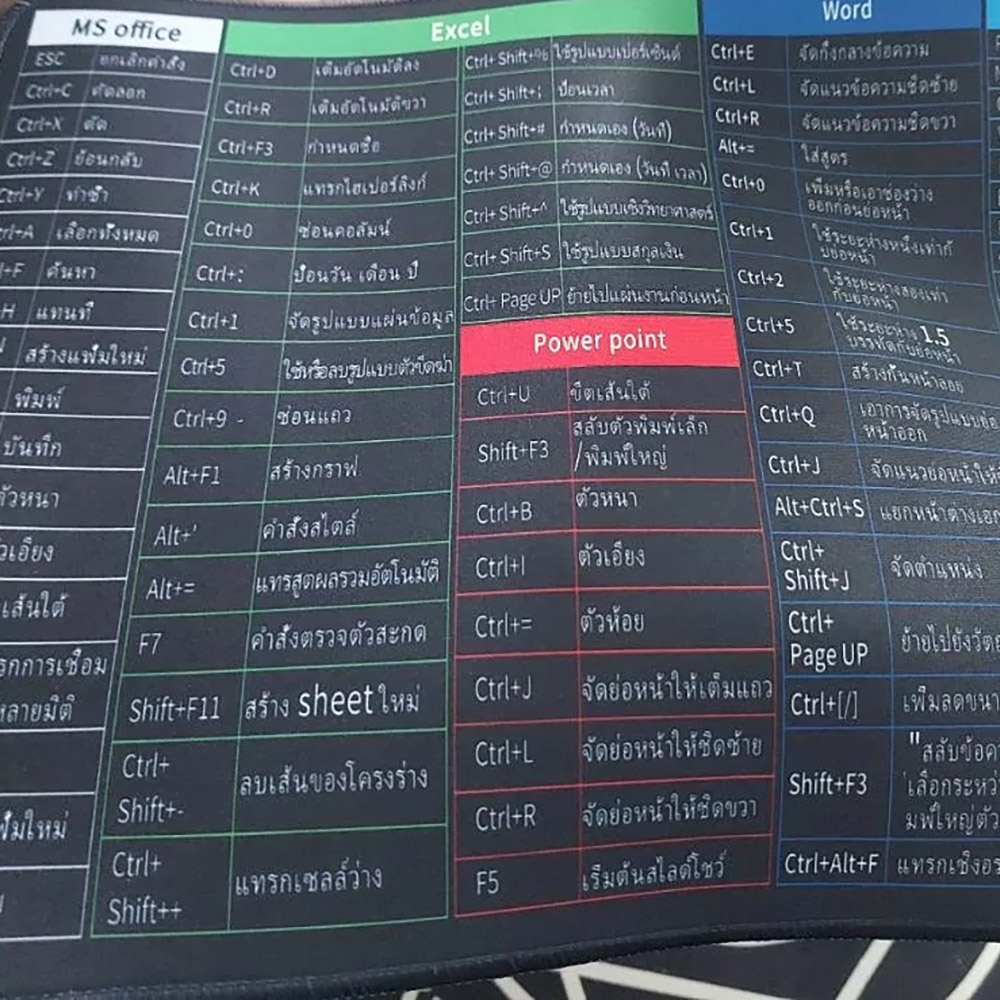 MS office
ESC ยกเลิกคำสั่ง
Ctrl+C คัดลอก
Ctrl+X ตัด
Ctrl+Z ย้อนกลับ
Ctrl+Y ทำซ้ำ
Ctrl+A เลือกทั้งหมด
ค้นหา
แทนที่
สร้างแฟ้มใหม่
พิมพ์
บันทึก
Excel
Ctrl+D เติมอัตโนมัติลง
Ctrl+R เติมอัตโนมัติขวา
Ctrl+F3 กำหนดชื่อ
Ctrl+K แทรกไฮเปอร์ลิงก์
Ctrl+0 ซ่อนคอลัมน์
Ctrl+: ป้อนวัน เดือน ปี
Ctrl+1 จัดรูปแบบแผ่นข้อมูล
Ctrl+5 ใช้หรือลบรูปแบบตัวขีดฆ่า
Ctrl+9 - ซ่อนแถว
Alt+F1 สร้างกราฟ
Alt+' คำสั่งสไตล์
Alt+= แทรสูตผลรวมอัตโนมัติ
F7 คำสั่งตรวจตัวสะกด
Shift+F11 สร้าง sheet ใหม่
Ctrl+
Shift+- ลบเส้นของโครงร่าง
Ctrl+
Shift++ แทรกเซลล์ว่าง
Ctrl+ Shift+% ใช้รูปแบบเปอร์เซ็นต์
Ctrl+ Shift+; ป้อนเวลา
Ctrl+ Shift+# กำหนดเอง (วันที่)
Ctrl+ Shift+@ กำหนดเอง (วันที่ เวลา)
Ctrl+ Shift+^ ใช้รูปแบบเชิงวิทยาศาสตร์
Ctrl+ Shift+S ใช้รูปแบบสกุลเงิน
Ctrl+ Page UP ย้ายไปแผ่นงานก่อนหน้า
Power point
Ctrl+U ขีดเส้นใต้
Shift+F3 สลับตัวพิมพ์เล็ก
/พิมพ์ใหญ่
Ctrl+B ตัวหนา
Ctrl+I ตัวเอียง
Ctrl+= ตัวห้อย
Ctrl+J จัดย่อหน้าให้เต็มแถว
Ctrl+L จัดย่อหน้าให้ชิดซ้าย
Ctrl+R จัดย่อหน้าให้ชิดขวา
F5 เริ่มต้นสไลด์โชว์
Word
Ctrl+E จัดกึ่งกลางข้อความ
Ctrl+L จัดแนวข้อความชิดซ้าย
Ctrl+R จัดแนวข้อความชิดขวา
Alt+= ใส่สูตร
Ctrl+0 เพิ่มหรือเอาช่องว่าง
ออกก่อนย่อหน้า
Ctrl+1 ใช้ระยะห่างหนึ่งเท่ากั
บย่อหน้า
Ctrl+2 ใช้ระยะห่างสองเท่า
กับย่อหน้า
Ctrl+5 ใช้ระยะห่าง 1.5
บรรทัดกับย่อหน้า
Ctrl+T สร้างกั้นหน้าลอย
Ctrl+Q เอาการจัดรูปแบบย่อ
หน้าออก
Ctrl+J จัดแนวย่อหน้าให้
Alt+Ctrl+S แยกหน้าต่าง
Ctrl+
Shift+J จัดตำแหน่ง
Ctrl+
Page UP ย้ายไปยัง
Ctrl+[/] เพิ่มลดขนา
Shift+F3 "สลับข้อค
เลือกระหว่
มพ์ใหญ่ตัว
Ctrl+Alt+F แทรกเชิงอร